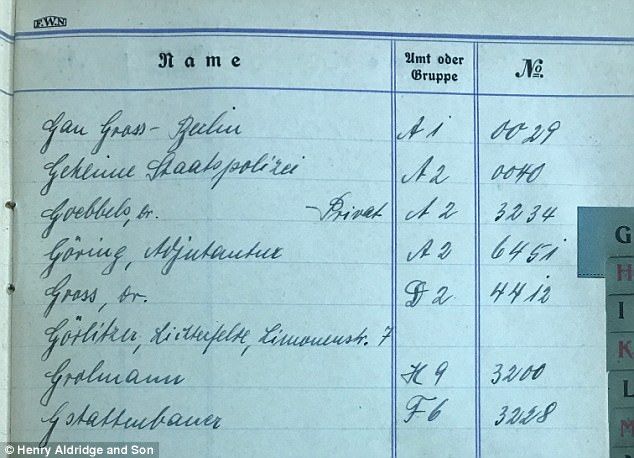 F.W.N
Name Amt oder Gruppe No.
Gau Gross-Berlin A1 0029
Geheime Staatspolizei A2 0040
Goebbels, Dr. - Privat A2 3234
Göring, Adjutantur A2 6451
Gross, Dr. D2 4412
Görlitzer, Lichterfelde, Limonenstr. 7
Grolmann H9 3200
Gstattenbauer F6 3228
G
H
I
K
L
M
© Henry Aldridge and Son